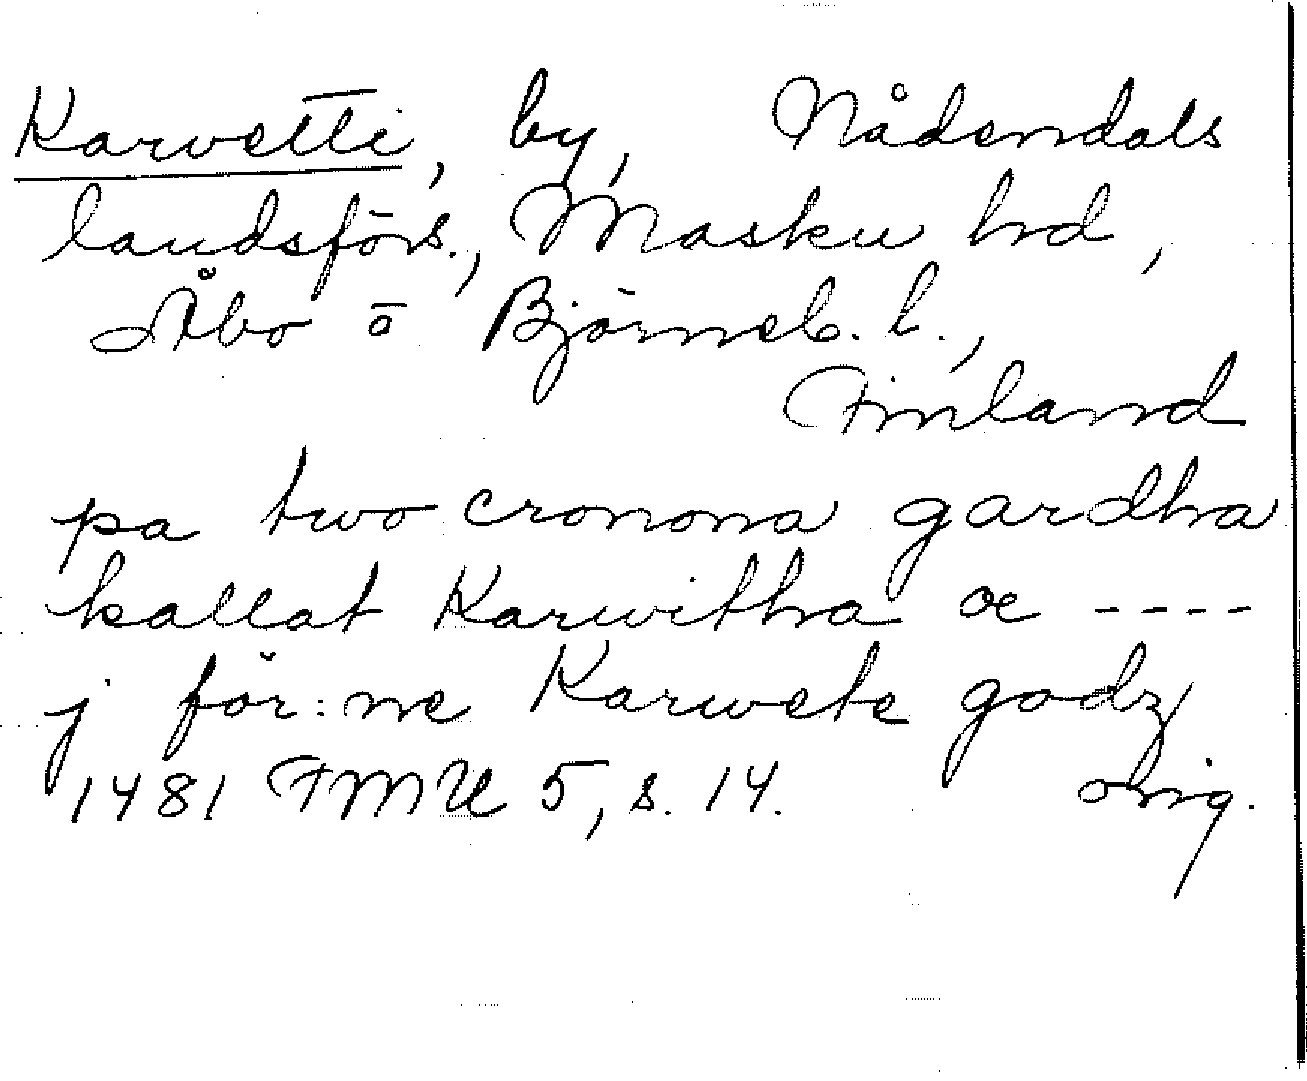 Karvetti, by, Nådendals
landsförs., Masku hd,
Åbo o Björneb. l.,
Finland
pa two cronona gardha
kallat Karwitha oc ----
j för:ne Karwete godz
1481 FMU 5, s. 14. orig.